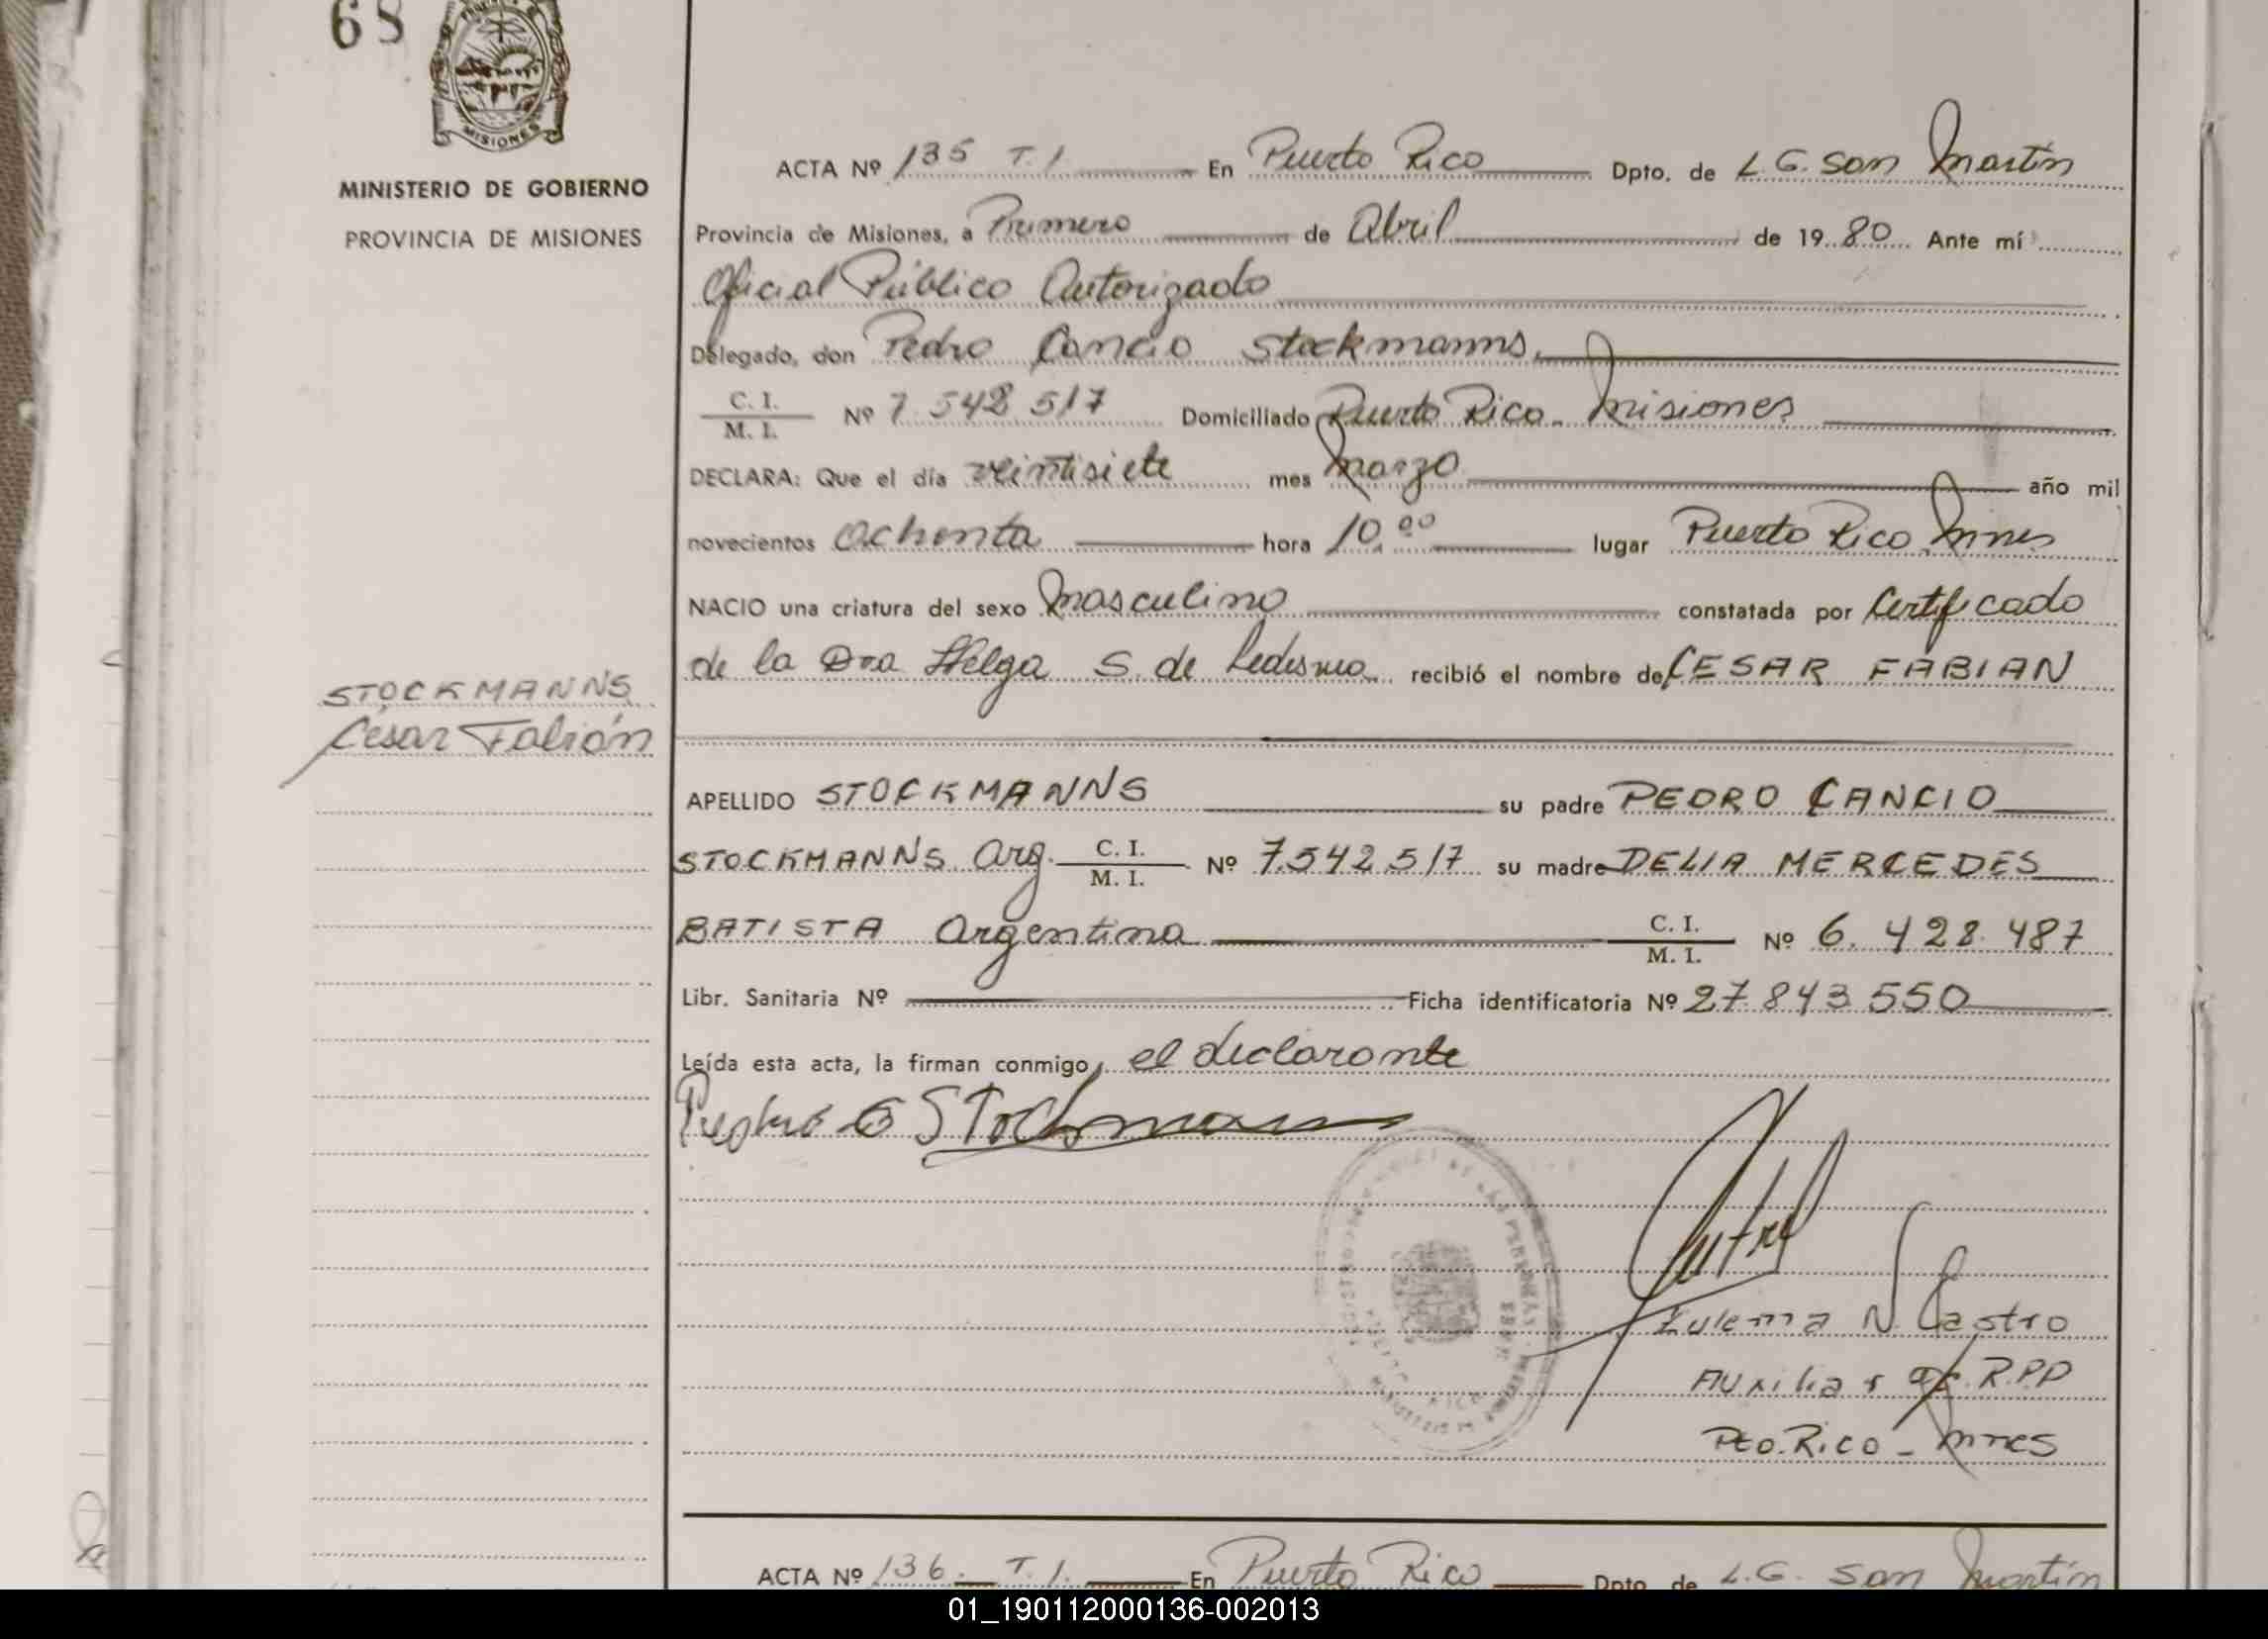 68
MISIONES
MINISTERIO DE GOBIERNO
PROVINCIA DE MISIONES
STOCKMANNS
César Fabián
ACTA Nº 135 T. 1. En Puerto Rico Dpto. de L. G. San Martín
Provincia de Misiones, a Primero de Abril de 19 80 Ante mí
Oficial Público Autorizado
Delegado, don Pedro Cancio Stockmanns,
C. I.
M. I. Nº 7.542.517 Domiciliado Puerto Rico - Misiones
DECLARA: Que el día veintisiete mes marzo año mil
novecientos Ochenta hora 10,00 lugar Puerto Rico Mnes
NACIO una criatura del sexo masculino constatada por Certificado
de la Dra Helga S. de Ledesma recibió el nombre de CESAR FABIAN
APELLIDO STOCKMANNS su padre PEDRO CANCIO
STOCKMANNS Arg. C. I.
M. I. Nº 7.542.517 su madre DELIA MERCEDES
BATISTA Argentina C. I.
M. I. Nº 6.428.487
Libr. Sanitaria Nº Ficha identificatoria Nº 27.843.550
Leída esta acta, la firman conmigo, el declarante
Pedro C Stockmanns
Zulema N. Castro
Auxiliar R.P.P
Pto. Rico - Mnes
ACTA Nº 136. T. 1. En Puerto Rico Dpto. de L. G. San Martín
01_190112000136-002013